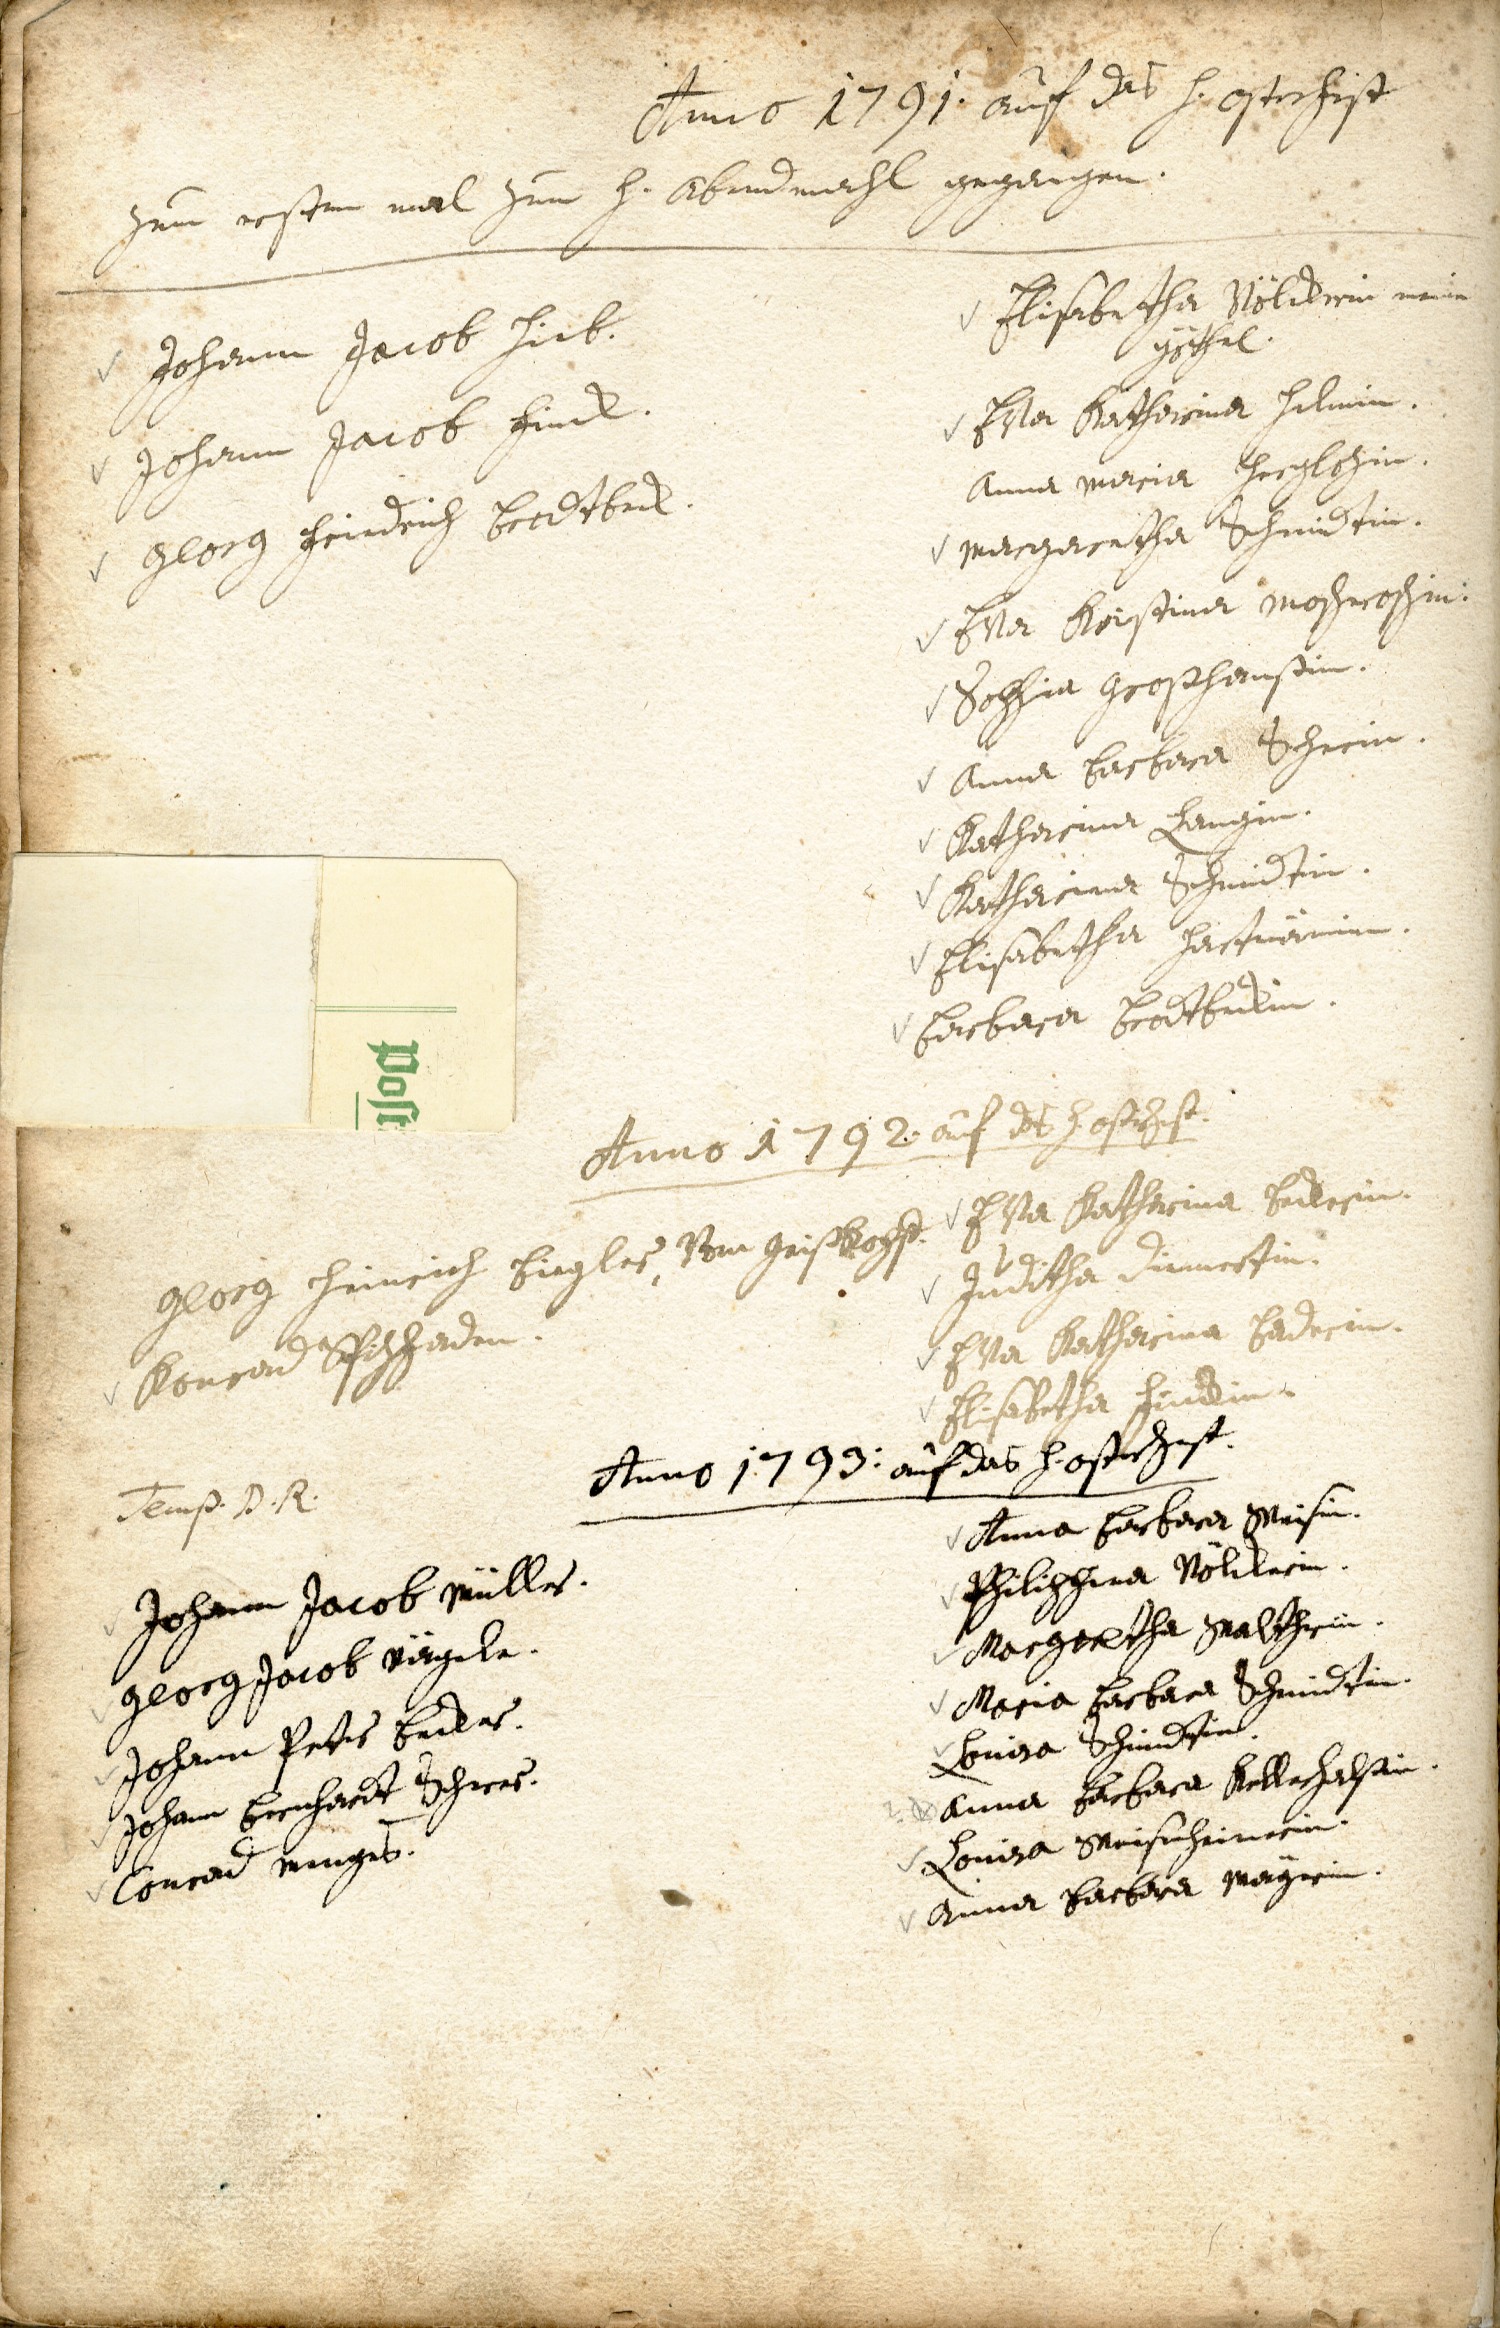 Anno 1791. auf das H. Osterfest
zum ersten mal zum H. Abendmahl gegangen.
Johann Jacob Hieb.
Johann Jacob Finck.
Georg Friedrich Brodtbeck.
Elisabetha Völckerin meine
göthel.
Eva Katharina Helmin.
Anna Maria
Margaretha Schmidtin.
Eva Kristina Moscheroschin.
Sophia Groshansin.
Anna Barbara Scherin.
Katharina Langin.
Katharina Schmidtin.
Elisabetha Hartmännin.
Barbara Brodtbeckin.
Anno 1792. auf das H. Osterfest.
Georg Heinrich Biegler, Vom Geiskopf.
Konrad Spitzfaden.
Eva Katharina Beckerin.
Juditha
Eva Katharina Baderin.
Elisabetha Finckin.
Anno 1793: auf das H. Osterfest.
Temp. D. R.
Johann Jacob Müller.
Georg Jacob Nägele.
Johann Peter Becker.
Johann Bernhardt Scherer.
Conrad Menges.
Anna Barbara Weisin.
Philippina Völckerin.
Margaretha Waltherin.
Maria Barbara Schmidtin.
Louisa Schmidtin.
Anna Barbara Kellerhalsin.
Louisa Weisenheimerin.
Anna Barbara Mayerin.